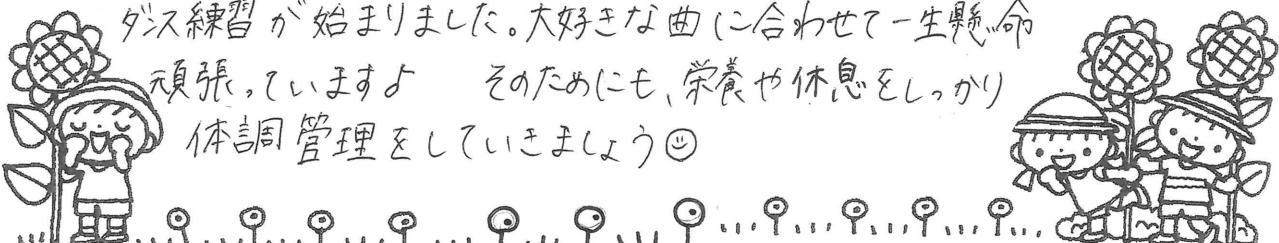 ダンス練習が始まりました。大好きな曲に合わせて一生懸命
頑張っていますよ　そのためにも、栄養や休息をしっかり
体調管理をしていきましょう☺